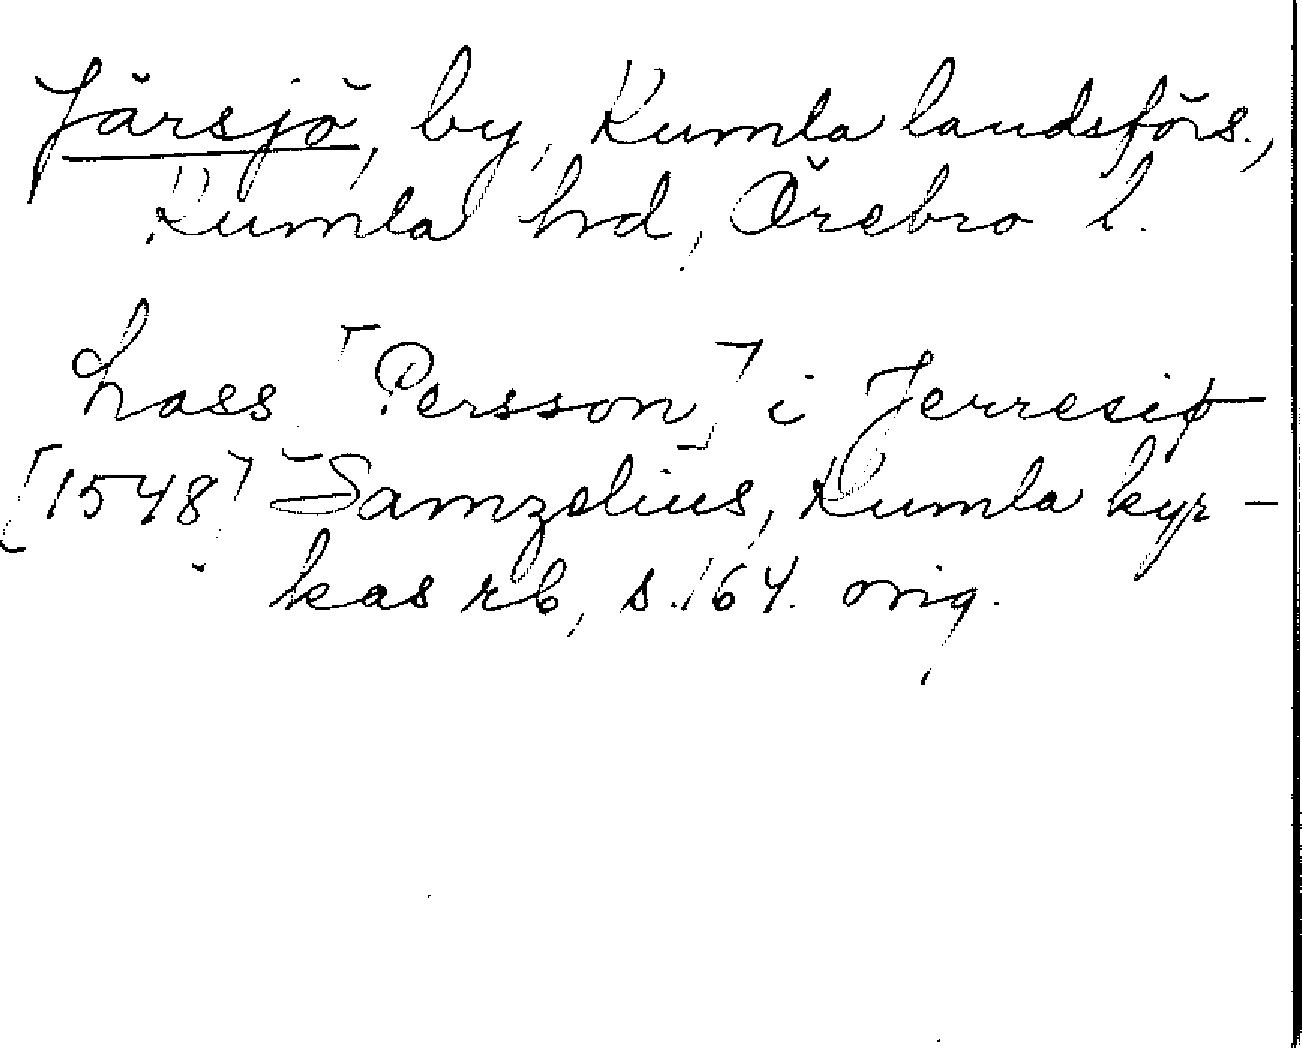 Järsjö, by, Kumla landsförs.,
Kumla hd, Örebro l.
Lass [Persson] i Jerresiø
[1548] Samzelius, Kumla kyr-
kas rb, s. 164. orig.